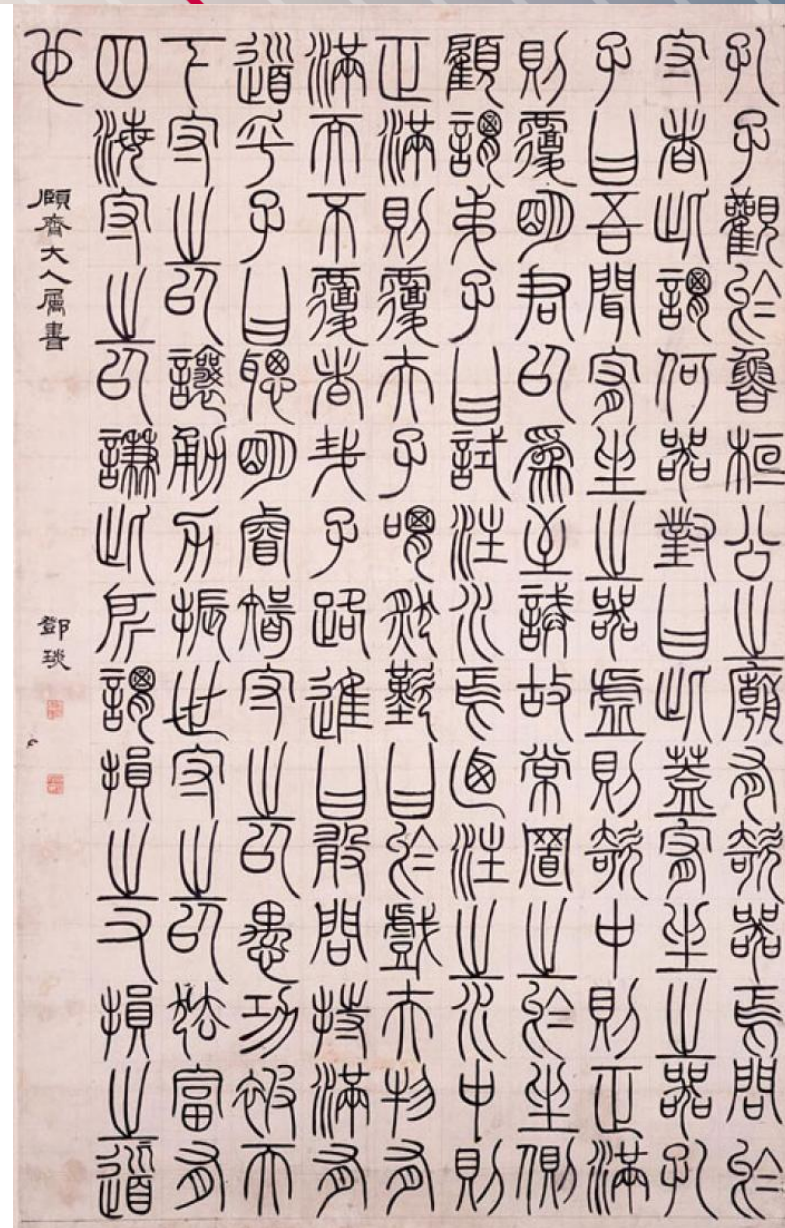 孔子觀於魯桓公之廟有欹器焉問於
守者此謂何器對曰此蓋宥坐之器孔
子曰吾聞宥坐之器虛則欹中則正滿
則覆明君以為至誡故常置之於坐側
顧謂弟子曰試注水焉迺注之水中則
正滿則覆夫子喟然歎曰於戲夫物有
滿而不覆者哉子路進曰敢問持滿有
道乎子曰聰明睿智守之以愚功被天
下守之以讓勇力振世守之以怯富有
四海守之以謙此所謂損之又損之道
也
頤齋大人屬書
鄧琰